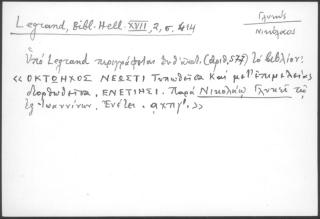 Legrand, Bibl. Hell. XVII, 2, σ. 414
Γλυκύς
Νικόλαος
Ὑπὸ Legrand περιγράφεται ἐνθ' ἀνωτ. (ἀριθ. 577) τὸ βιβλίον:
«ΟΚΤΩΗΧΟΣ ΝΕΩΣΤΙ Τυπωθεῖσα καὶ μετ' ἐπιμελείας
διορθωθεῖσα. ΕΝΕΤΙΗΣΙ. Παρὰ Νικολάῳ Γλυκεῖ τῷ
ἐξ Ἰωαννίνων. Ἐνέτει. αχπγ'.»